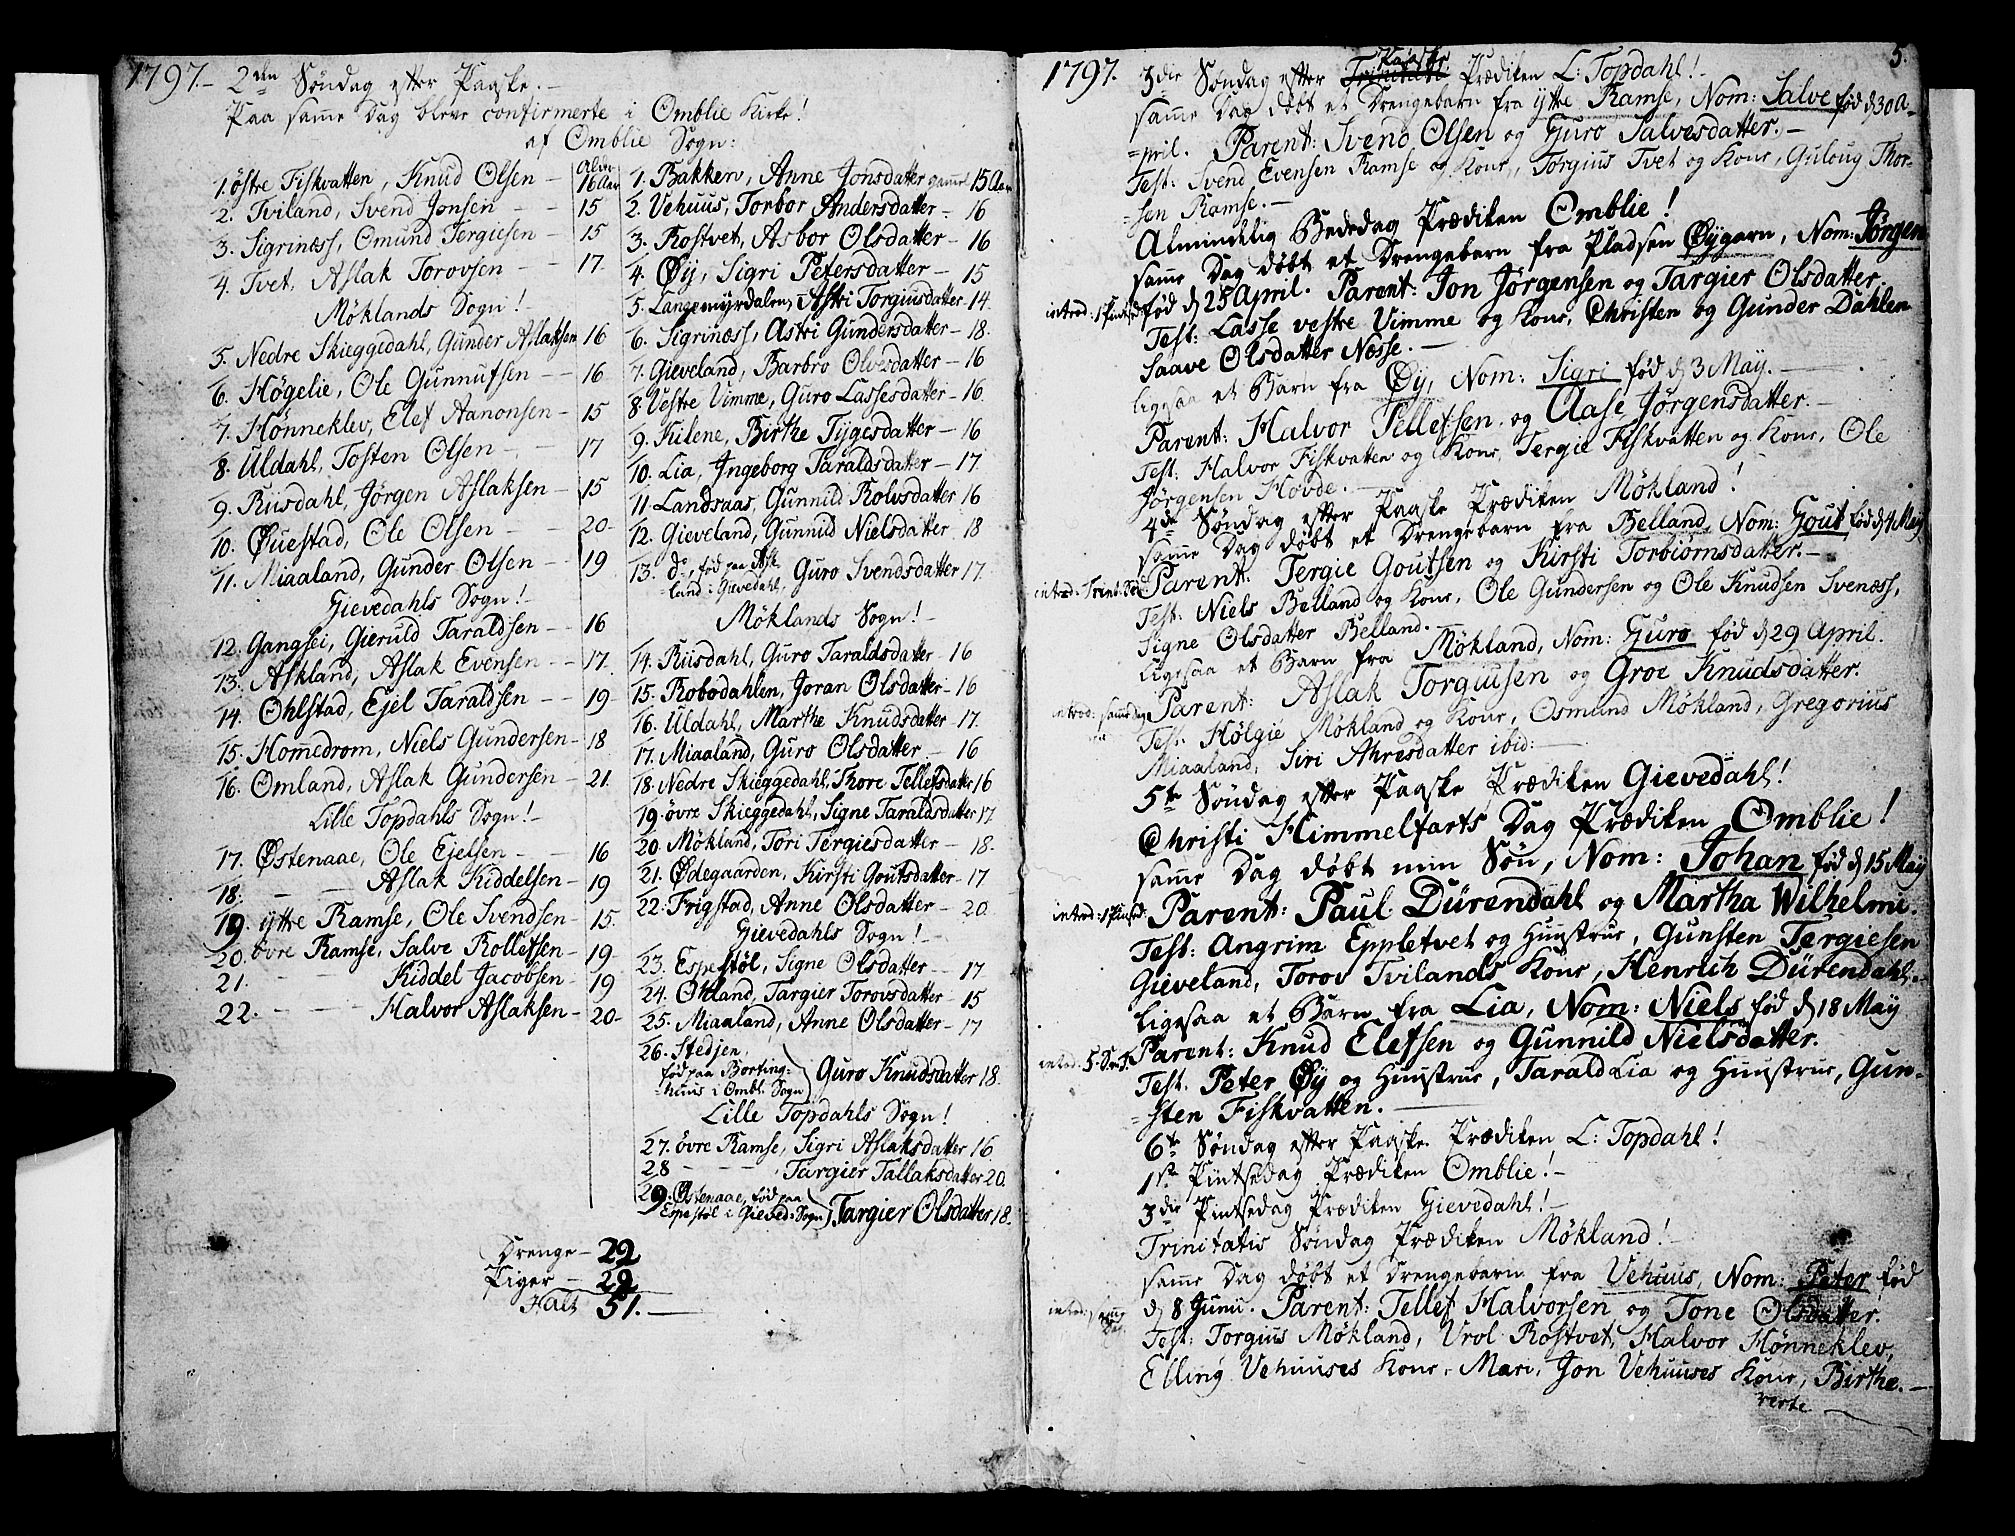 1797.- 2den Søndag efter Paaske.-
Paa samme Dag bleve confirmerte i Omblie Kirke!
af Omblie Sogn:
Alder
1. østre Fiskvatten, Knud Olsen - 16 Aar
2. Tviland, Svend Jonsen - - 15
3. Sigrinæss, Omund Tergiesen - 15
4. Tvet, Aslak Torovsen - - 17.
Møklands Sogn!-
5. Nedre Skieggedahl, Gunder Aslaksen 16
6. Høgelie, Ole Gunnufsen - - 16
7. Hønneklev, Elef Aanonsen - 15
8. Uldahl, Tosten Olsen - - 17
9. Riisdahl, Jørgen Aslaksen - 15
10. Øuestad, Ole Olsen - - 20-
11. Miaaland, Gunder Olsen - 19
Gievedahls Sogn!-
12. Gangsei, Gieruld Taraldsen - - 16
13. Askland, Aslak Evensen - - 17.
14. Ohlstad, Ejel Taraldsen - - 19
15. Homedrom, Niels Gundersen - 18
16. Omland, Aslak Gundersen - 21.
Lille Topdahls Sogn!-
17. Østenaae, Ole Ejelsen - - 16
18. - - Aslak Kiddelsen - 19
19. ÿttre Ramse, Ole Svendsen - 15.
20. øvre Ramse, Salve Rollefsen - 19-
21. Kiddel Jacobsen - 19
22. - - - Halvor Aslaksen - 20-
1. Bakken, Anne Jonsdatter gamel 15 Aar
2. Vehuus, Torbor Andersdatter - 16
3. Rostvet, Asbor Olsdatter - 16
4. Øÿ, Sigri Petersdatter - 15
5. Langemyrdalen, Astri Torgiusdatter 14.
6. Sigrinæss, Astri Gundersdatter - 18.
7. Gieveland, Barbro Olvesdatter - 16
8. Vestre Vimme, Guro Lassesdatter - 16.
9. Kilene, Birthe Tÿgesdatter - 16
10. Lia, Ingeborg Taraldsdatter - 17.
11. Landsaas, Gunnild Rolvsdatter 16
12. Gieveland, Gunnild Nielsdatter - 18
13. do, fød paa Ask-
land i Gievedahl, Guro Svendsdatter 17.
Møklands Sogn!-
14. Riisdahl, Guro Taraldsdatter - 16
15. Robodahlen, Joran Olsdatter - 16
16. Uldahl, Marthe Knudsdatter - 17.
17. Miaaland, Guro Olsdatter - 16
18. Nedre Skieggedahl, Thore Tellefsdatter 16
19. øvre Skieggedahl, Signe Taraldsdatter 17
20. Møkland, Tori Tergiesdatter - 18.
21. Ødegaarden, Kirsti Goutsdatter - 17
22. Frigstad, Anne Olsdatter - 20.
Gievedahls Sogn!-
23. Espestøl, Signe Olsdatter - 17
24. Okland, Targier Torovsdatter - 15
25. Miaaland, Anne Olsdatter - 17
26. Stedjen,
fød paa Borting-
huus i Ombl: Sogn) Guro Knudsdatter 18.
Lille Topdahls Sogn!
27. øvre Ramse, Sigri Aslaksdatter 16
28 - - - , Targier Tallaksdatter 20.
29. Østenaae, fød paa
Espestøl i Gieved: Sogn) Targier Olsdatter 18.
Drenge - 22
Piger - 29
Hals 51.-
5.
Paaske
1797. 3die Søndag efter Trinitatis Prædiken L: Topdahl!-
samme Dag døbt et Drengebarn fra ÿtre Ramse, Nom: Salve fød d 30 A-
=pril. Parent: Svend Olsen og Guro Salvesdatter.-
Test: Svend Evensen Ramse og Kone, Torgius Tvet og Kone, Guloug Thor-
=sen Ramse.-
Almindelig Bededag Prædiken Omblie!
samme Dag døbt et Drengebarn fra Pladsen Øÿgarn, Nom: Jørgen
introd: 1 Pintsed: fød d 25 April. Parent: Jon Jørgensen og Targier Olsdatter.
Test: Lasse vestre Vimme og Kone, Christen og Gunder Dahlen
Saave Olsdatter Næsse.-
ligesaa et Barn fra Øÿ, Nom: Sigri fød d 3 Maÿ.-
Parent: Halvor Tellefsen og Aase Jørgensdatter.-
Test: Halvor Fiskvatten og Kone, Tergie Fiskvatten og Kone, Ole
Jørgensen Hovde.-
4de Søndag efter Paaske Prædiken Møkland!
samme Dag døbt et Drengebarn fra Belland, Nom: Gout fød d 4 Maÿ
introd: Trinit: Sø: Parent: Tergie Goutsen og Kirsti Torbiørnsdatter.-
Test: Niels Belland og Kone, Ole Gundersen og Ole Knudsen Svenæss,
Signe Olsdatter Belland.-
ligesaa et Barn fra Møkland, Nom: Guro fød d 29 April.
introd: same dag Parent: Aslak Torgiusen og Groe Knudsdatter.
Test: Hølgie Møkland og Kone, Osmund Møkland, Gregorius
Miaaland, Siri Ahresdatter ibid:-
5te Søndag efter Paaske Prædiken Gievedahl!
Christi Himmelfarts Dag Prædiken Omblie!
samme Dag døbt min Søn, Nom: Johan fød d 15 Maÿ
introd: 1 Pintsed: Parent: Paul Dürendahl og Martha Wilhelmi.
Test: Angrim Eppletvet og Huustrue, Gunsten Tergiesen
Gieveland, Torov Tvilands Kone, Henrich Dürendahl.-
ligesaa et Barn fra Lia, Nom: Niels fød d 18 Maÿ
introd: 5. S: e: T: Parent: Knud Elefsen og Gunnild Nielsdatter.
Test: Peter Øÿ og Huustrue, Tarald Lia og Huustrue, Gun-
=sten Fiskvatten.-
6te Søndag efter Paaske Prædiken L: Topdahl!
1ste Pintsedag Prædiken Omblie!-
3die Pintsedag Prædiken Gievedahl!-
Trinitatis Søndag Prædiken Møkland!-
samme Dag døbt et Drengebarn fra Vehuus, Nom: Peter fød
introd: same Dag d 8 Junii. Parent: Tellef Halvorsen og Tone Olsdatter.
Test: Torgius Møkland, Vrol Rostvet, Halvor Hønneklev,
Elling Vehuuses Kone, Mari, Jon Vehuuses Kone, Birthe.-
verte